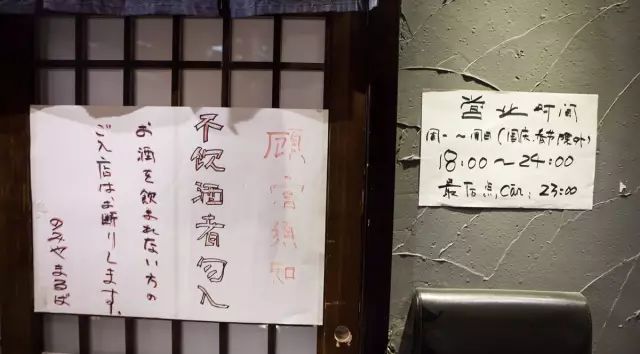 顾客须知
不饮酒者勿入
お酒を飲まれない方の
ご入店はお断りします。
のみやまる氏
营业时间
周一～周日(国庆、春节除外)
18:00～24:00
最后点餐: 23:00